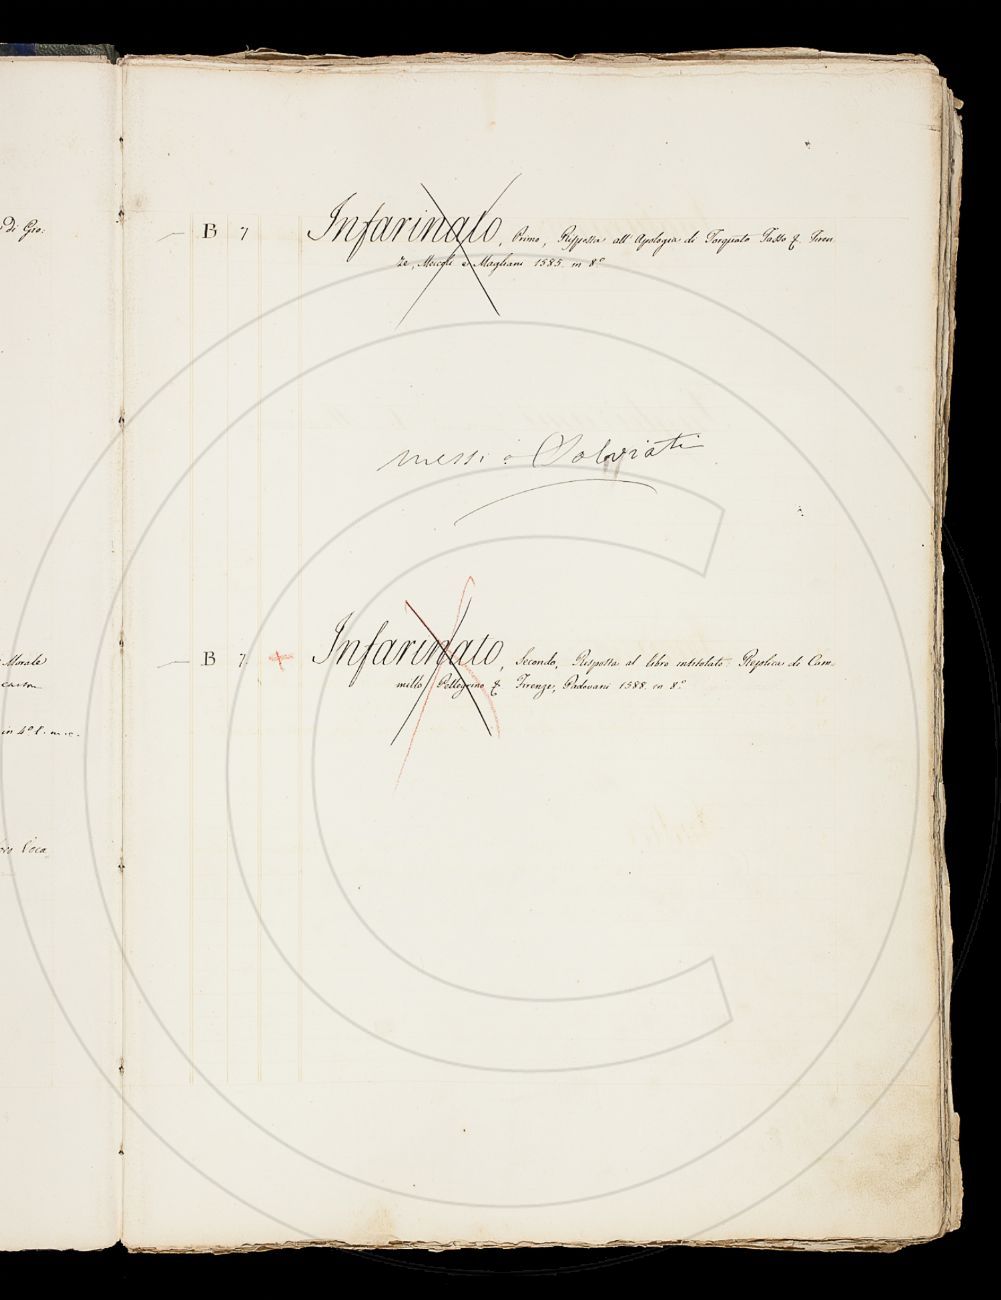 di Gio:
B 7 Infarinato, Primo, Risposta all' Apologia di Torquato Tasso &. Firen-
ze, Meccoli e Magliani 1585. in 8.°
messi a Salviati
Morale
B 7. + Infarinato, Secondo, Risposta al libro intitolato Replica di Cam-
millo Pellegrino &. Firenze, Padovani 1588. in 8.°
in 4.° l. m. c.